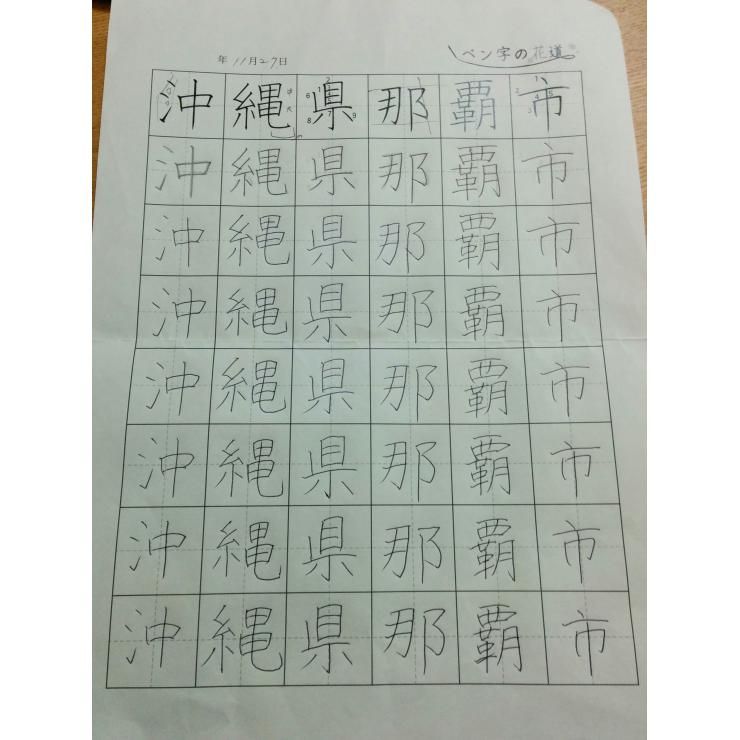 年 11月27日 ペン字の花道
沖 縄 県 那 覇 市
沖 縄 県 那 覇 市
沖 縄 県 那 覇 市
沖 縄 県 那 覇 市
沖 縄 県 那 覇 市
沖 縄 県 那 覇 市
沖 縄 県 那 覇 市
沖 縄 県 那 覇 市